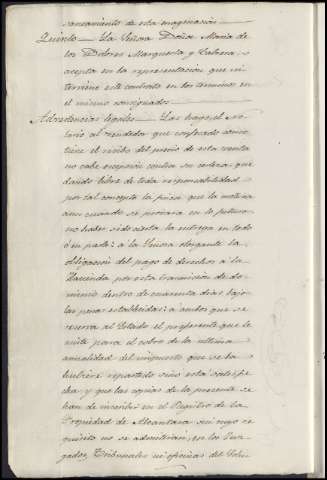 saneamiento de esta enagenación
Quinto — La Señora Doña Maria de
los Dolores Marquesta y Cabrera
acepta en la representacion que in-
terviene este contrato en los terminos en
el mismo consignados
Advertencias legales — Las hago yo el No-
tario al vendedor que confesado como
tiene el recibo del precio de esta venta
no cabe excepcion contra su certeza que-
dando libre de toda responsabilidad
por tal concepto la finca que la motiva
aun cuando se probara en lo futuro
no haber sido cierta la entrega en todo
ó en parte: a la Señora otorgante la
obligacion del pago de derechos a la
Hacienda por esta transmision de do-
minio dentro de cuarenta dias bajo
las penas establecidas: a ambos que se
reserva al Estado el preferente que le
asiste para el cobro de la ultima
anualidad del impuesto que se ha-
hubiere repartido sino esta satisfe-
cha y que las copias de la presente se
han de inscribir en el Registro de la
Propiedad de Alcantara sin cuyo re-
quisito no se admitiran en los Juz-
gados, Tribunales ni oficinas del Gobi-